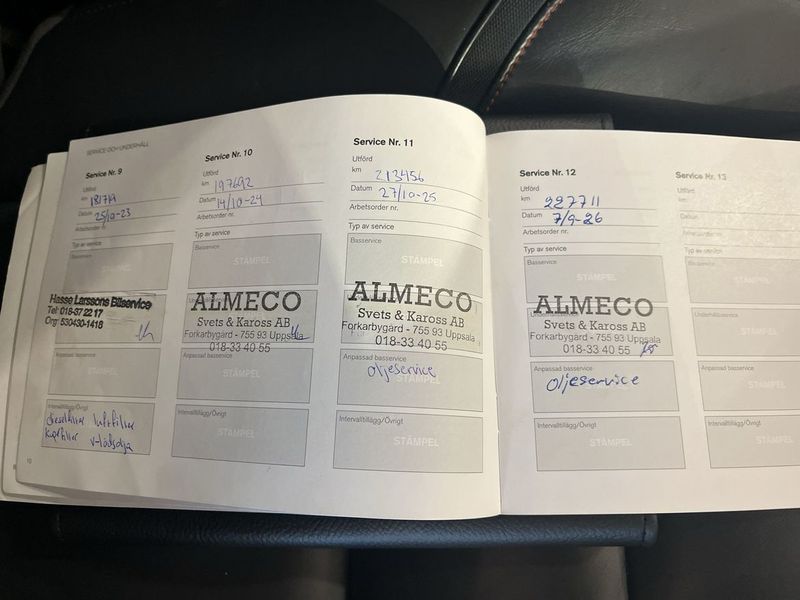 SERVICE OCH UNDERHÅLL
Service Nr. 9
Utförd
km 181719
Datum 25/10-23
Arbetsorder nr.
Typ av service
Basservice
STÄMPEL
Hasse Larssons Bilservice
Tel: 018-37 22 17
Org: 530430-1418
Anpassad basservice
STÄMPEL
Intervalltillägg/Övrigt
dieselfilter luftfilter
kupfilter v-lådsolja
10
Service Nr. 10
Utförd
km 197692
Datum 14/10-24
Arbetsorder nr.
Typ av service
Basservice
STÄMPEL
ALMECO
Svets & Kaross AB
Forkarbygård - 755 93 Uppsala
018-33 40 55
Anpassad basservice
STÄMPEL
Intervalltillägg/Övrigt
STÄMPEL
Service Nr. 11
Utförd
km 213456
Datum 27/10-25
Arbetsorder nr.
Typ av service
Basservice
STÄMPEL
ALMECO
Svets & Kaross AB
Forkarbygård - 755 93 Uppsala
018-33 40 55
Anpassad basservice
oljeservice
STÄMPEL
Intervalltillägg/Övrigt
STÄMPEL
Service Nr. 12
Utförd
km 227711
Datum 7/9-26
Arbetsorder nr.
Typ av service
Basservice
STÄMPEL
ALMECO
Svets & Kaross AB
Forkarbygård - 755 93 Uppsala
018-33 40 55
Anpassad basservice
oljeservice
Intervalltillägg/Övrigt
STÄMPEL
Service Nr. 13
Utförd
km
Datum
Arbetsorder nr.
Typ av service
Basservice
STÄMPEL
Underhållsservice
STÄMPEL
Anpassad basservice
STÄMPEL
Intervalltillägg/Övrigt
STÄMPEL